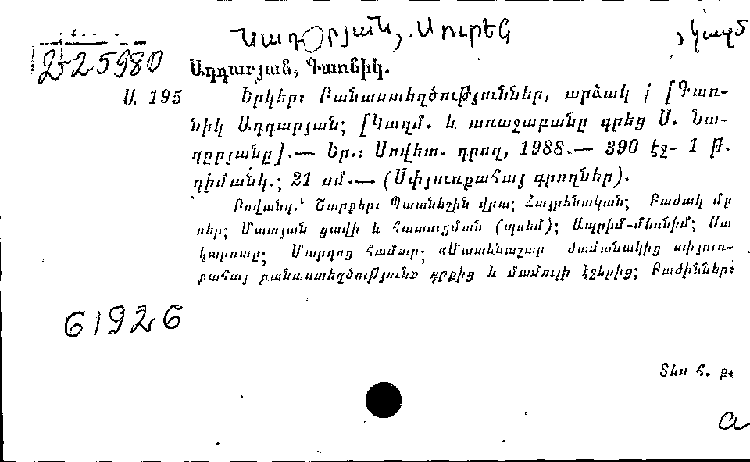 Նադարյան, Սուրեն, կազմ
2-25980
Ադդարյան, Գառնիկ.
Ա. 195 Երկեր: Բանաստեղծություններ, արձակ / [Գառ-
նիկ Ադդարյան; [Կազմ. և առաջաբանը գրեց Ս. Նա-
դըրյանը].— Եր.: Սովետ. գրող, 1988.— 390 էջ- 1 թ.
դիմանկ.; 21 սմ.— (Սփյուռքահայ գրողներ).
Բովանդ.՝ Շարքեր: Պատնեշին վրա; Հայրենական; Բաժակ մը
սեր; Մատյան ցավի և հառաչման (պոեմ); Ապրիլ-մեռնիլ; Սա
Մարդոց համար; ժամանակից սփյուռ-
քահայ բանաստեղծությունը գրքից և մամուլի էջերից; Բաժիններ:
61926
Տես հ. ք.
a